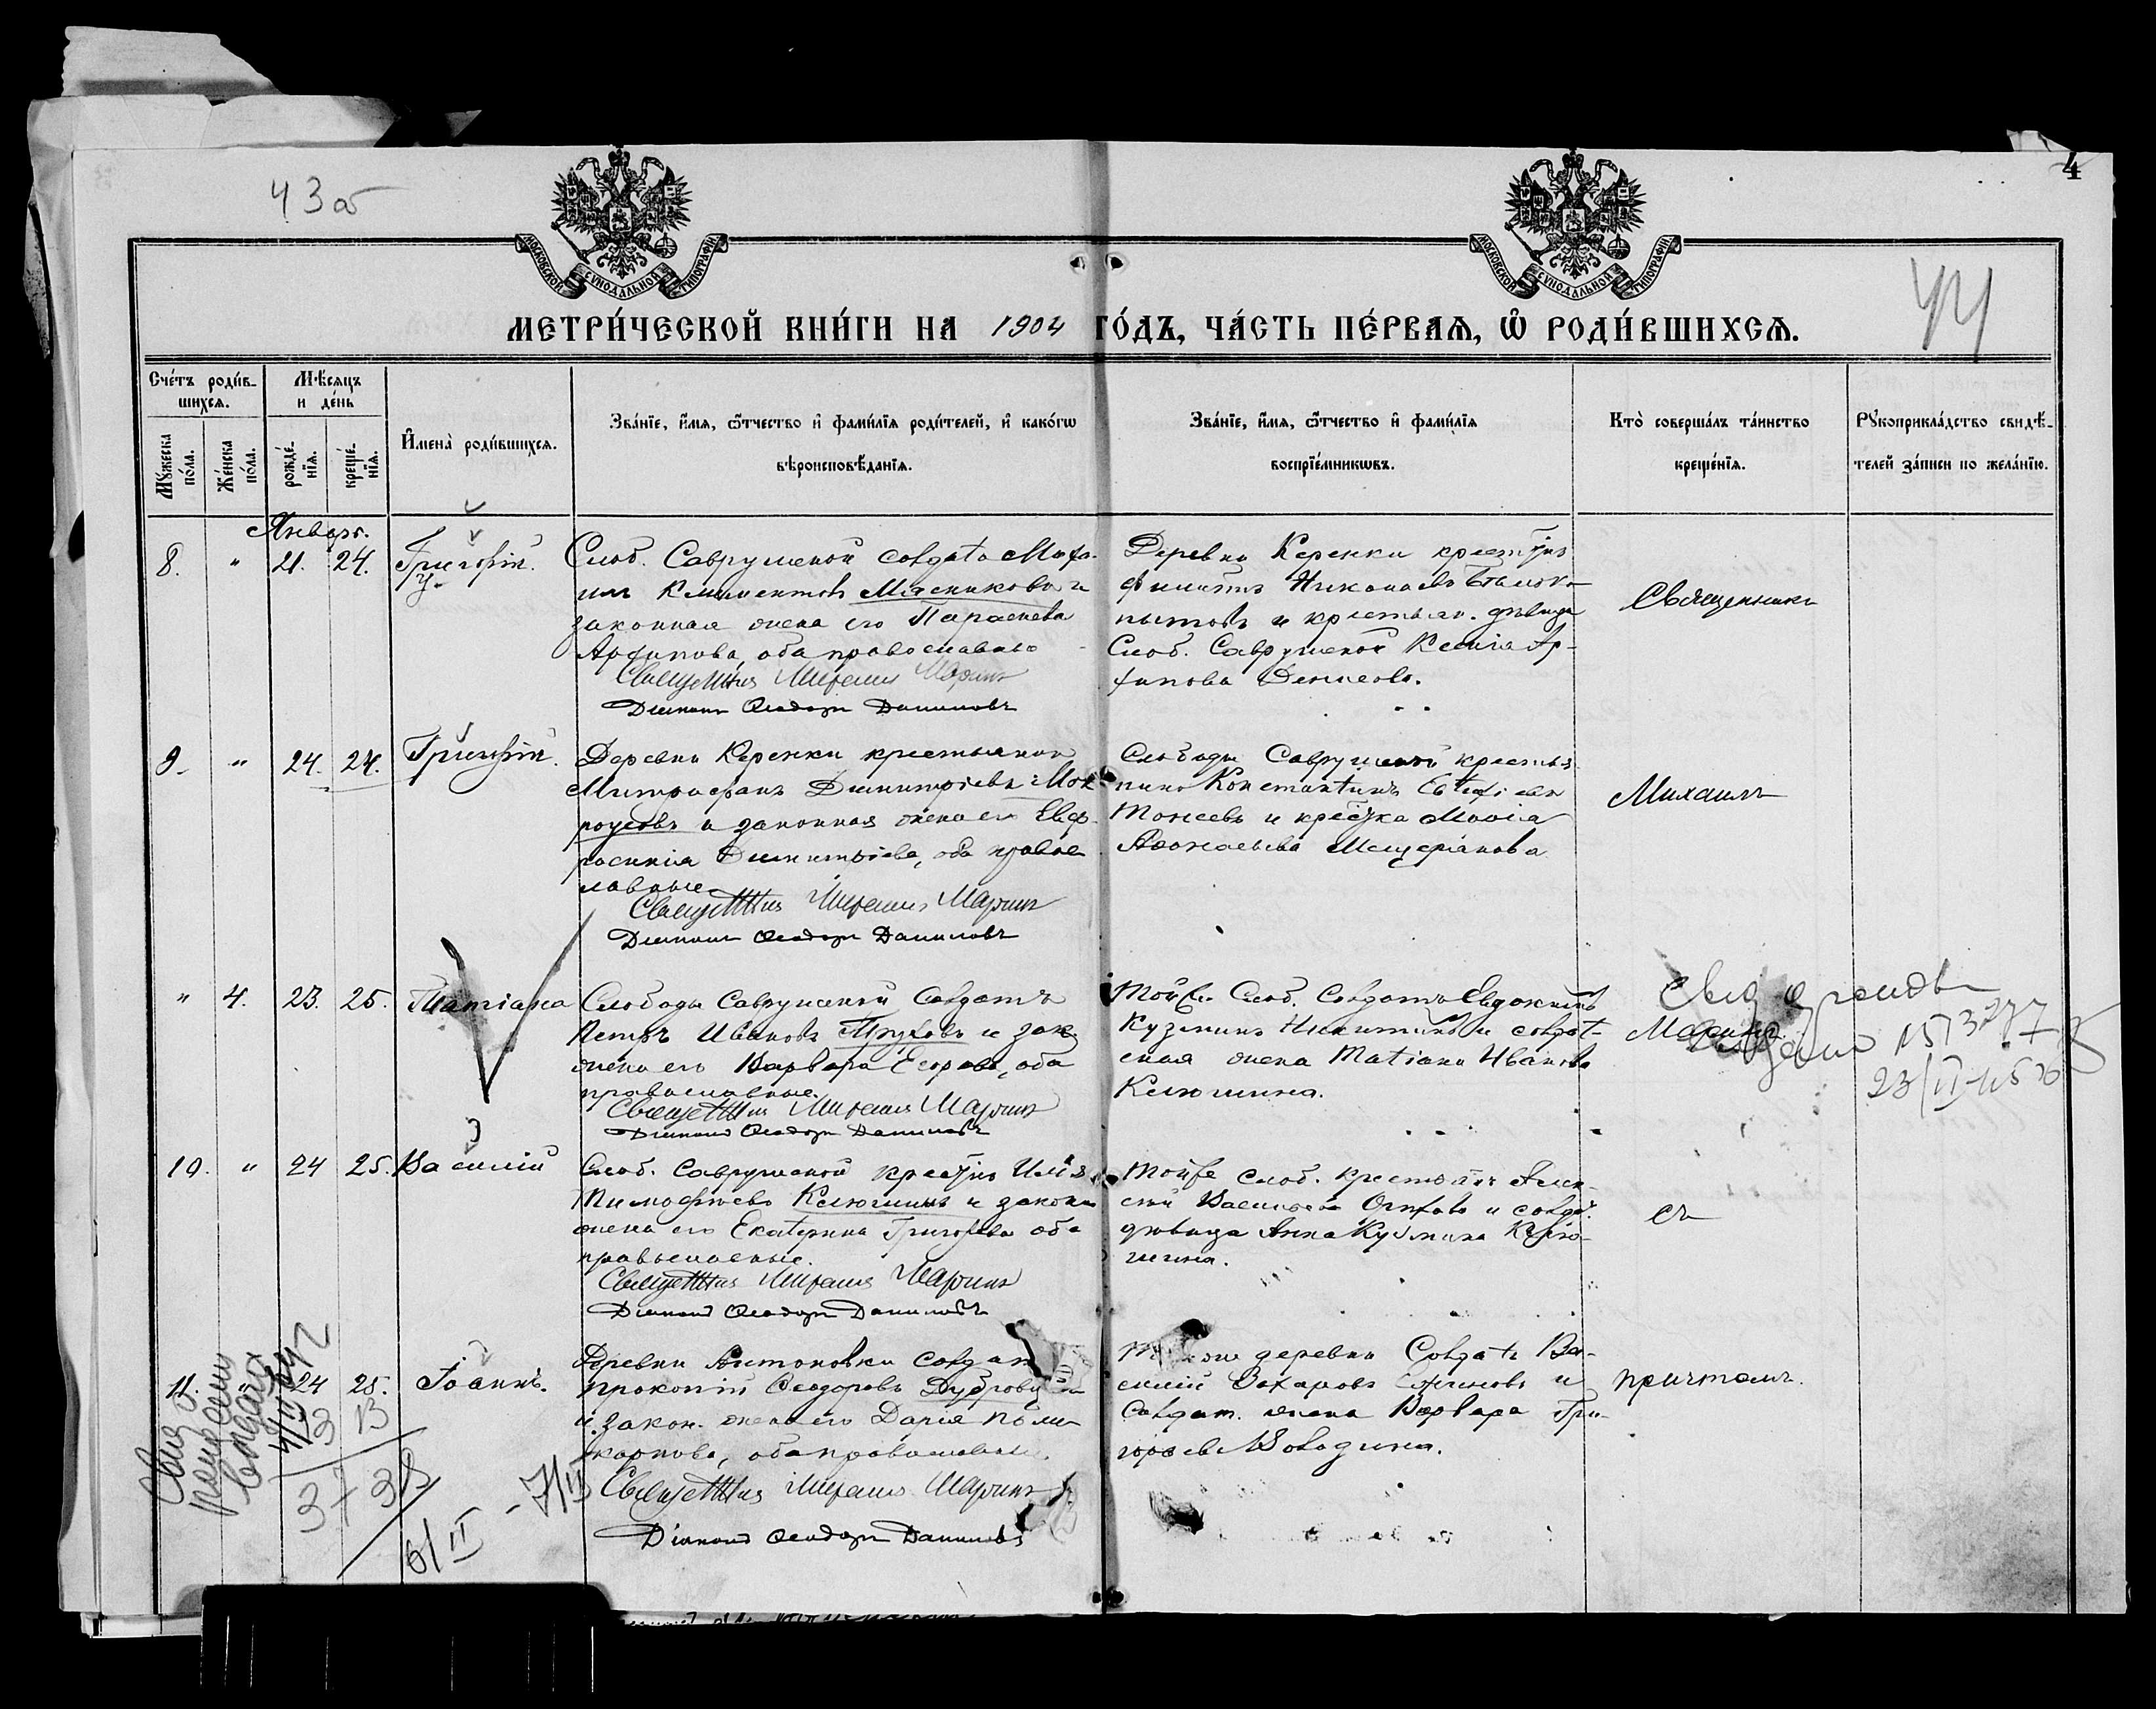 43об
4
44
МОСКОВСКОЙ СѴНОДАЛЬНОЙ ТИПОГРАФІИ
МОСКОВСКОЙ СѴНОДАЛЬНОЙ ТИПОГРАФІИ
МЕТРИ́ЧЕСКОЙ КНИ́ГИ НА 1904 ГО́ДЪ, ЧА́СТЬ ПЕ́РВАѦ, Ѡ҆ РОДИ́ВШИХСѦ.
Сче́тъ роди́в-
шихсѧ.
Мѣ́сѧцъ
и де́нь
Мꙋ́жеска по́ла.
Же́нска по́ла.
рожде́-
нїѧ.
креще́-
нїѧ.
И҆мена̀ роди́вшихсѧ.
Зва́нїе, и҆́мѧ, ѻ҆́тчество и҆ фами́лїѧ роди́телей, и҆ како́гѡ
вѣроисповѣ́данїѧ.
Зва́нїе, и҆́мѧ, ѻ҆́тчество и҆ фами́лїѧ
воспрїе́мникѡвъ.
Кто̀ соверша́лъ та́инство
креще́нїѧ.
Рꙋкоприкла́дство свидѣ́-
телей за́писи по жела́нїю.
Январь.
8. " 21. 24. Григорій.
Слоб. Саврушской солдатъ Миха-
илъ Климентовъ Мясниковъ и
законная жена его Параскева
Архипова, оба православные
Священникъ Михаилъ Маринъ
Діаконъ Ѳеодоръ Даниловъ
Деревни Керенки крестьянъ
Филиппъ Николаевъ
и крестьян. дѣвица
Слоб. Саврушской Ксенія Ар-
хипова
Священникъ
9. " 24. 24. Григорій.
Деревни Керенки крестьянинъ
Митрофанъ Димитріевъ Мок-
роусовъ и законная жена его Евф-
росинія Димитріева, оба правос-
лавные
Священникъ Михаилъ Маринъ
Діаконъ Ѳеодоръ Даниловъ
Слободы Саврушской крестья-
нинъ Константинъ Евтихіевъ
и Марія
Мещерякова
Михаилъ
" 4. 23. 25. Татіана
Слободы Саврушской Солдатъ
Петръ Ивановъ Труховъ и зак.
жена его Варвара Егорова, оба
православные.
Священникъ Михаилъ Маринъ
Діаконъ Ѳеодоръ Даниловъ
Той же Слоб. Солдатъ Евдокимъ
Кузминъ Никитинъ и солдат-
ская жена Татіана Иванова
Келюшина.
Маринъ
10. " 24 25. Василій
Слоб. Саврушской крестьян. Илія
Тимоѳеевъ Келюшинъ и законная
жена его Екатерина Григорьева оба
православные.
Священникъ Михаилъ Маринъ
Діаконъ Ѳеодоръ Даниловъ
Той же слоб. крестьянъ Алек-
сѣй Васильевъ и солдат.
дѣвица Анна Кузмина Келю-
шина.
съ
11. 24 25. Іоаннъ.
Деревни Антоновки солдатъ
Прокопій Ѳеодоровъ
и закон. жена его Дарія Поли-
карпова, оба православные.
Священникъ Михаилъ Маринъ
Діаконъ Ѳеодоръ Даниловъ
деревни Солдатъ Ва-
силій Захаровъ и
Солдат. жена Варвара Гри-
горьева Володина.
причтомъ.
6/II - 7/II